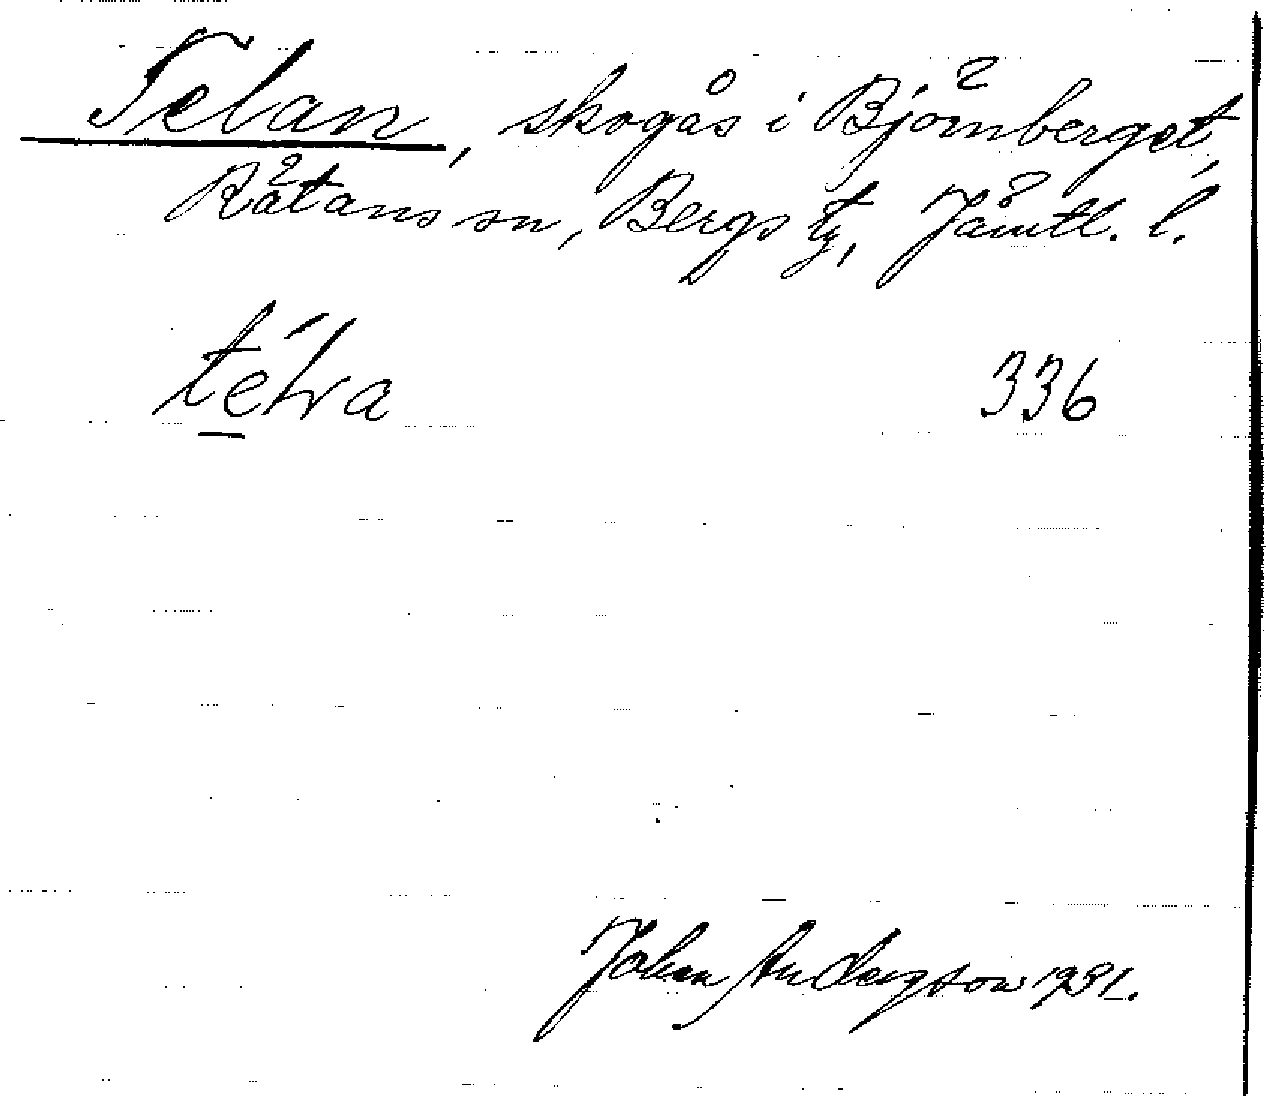 Telan, skogås i Björnberget,
Rätans sn, Bergs tg, Jämtl. l.
336
Johan Andersson 1931.